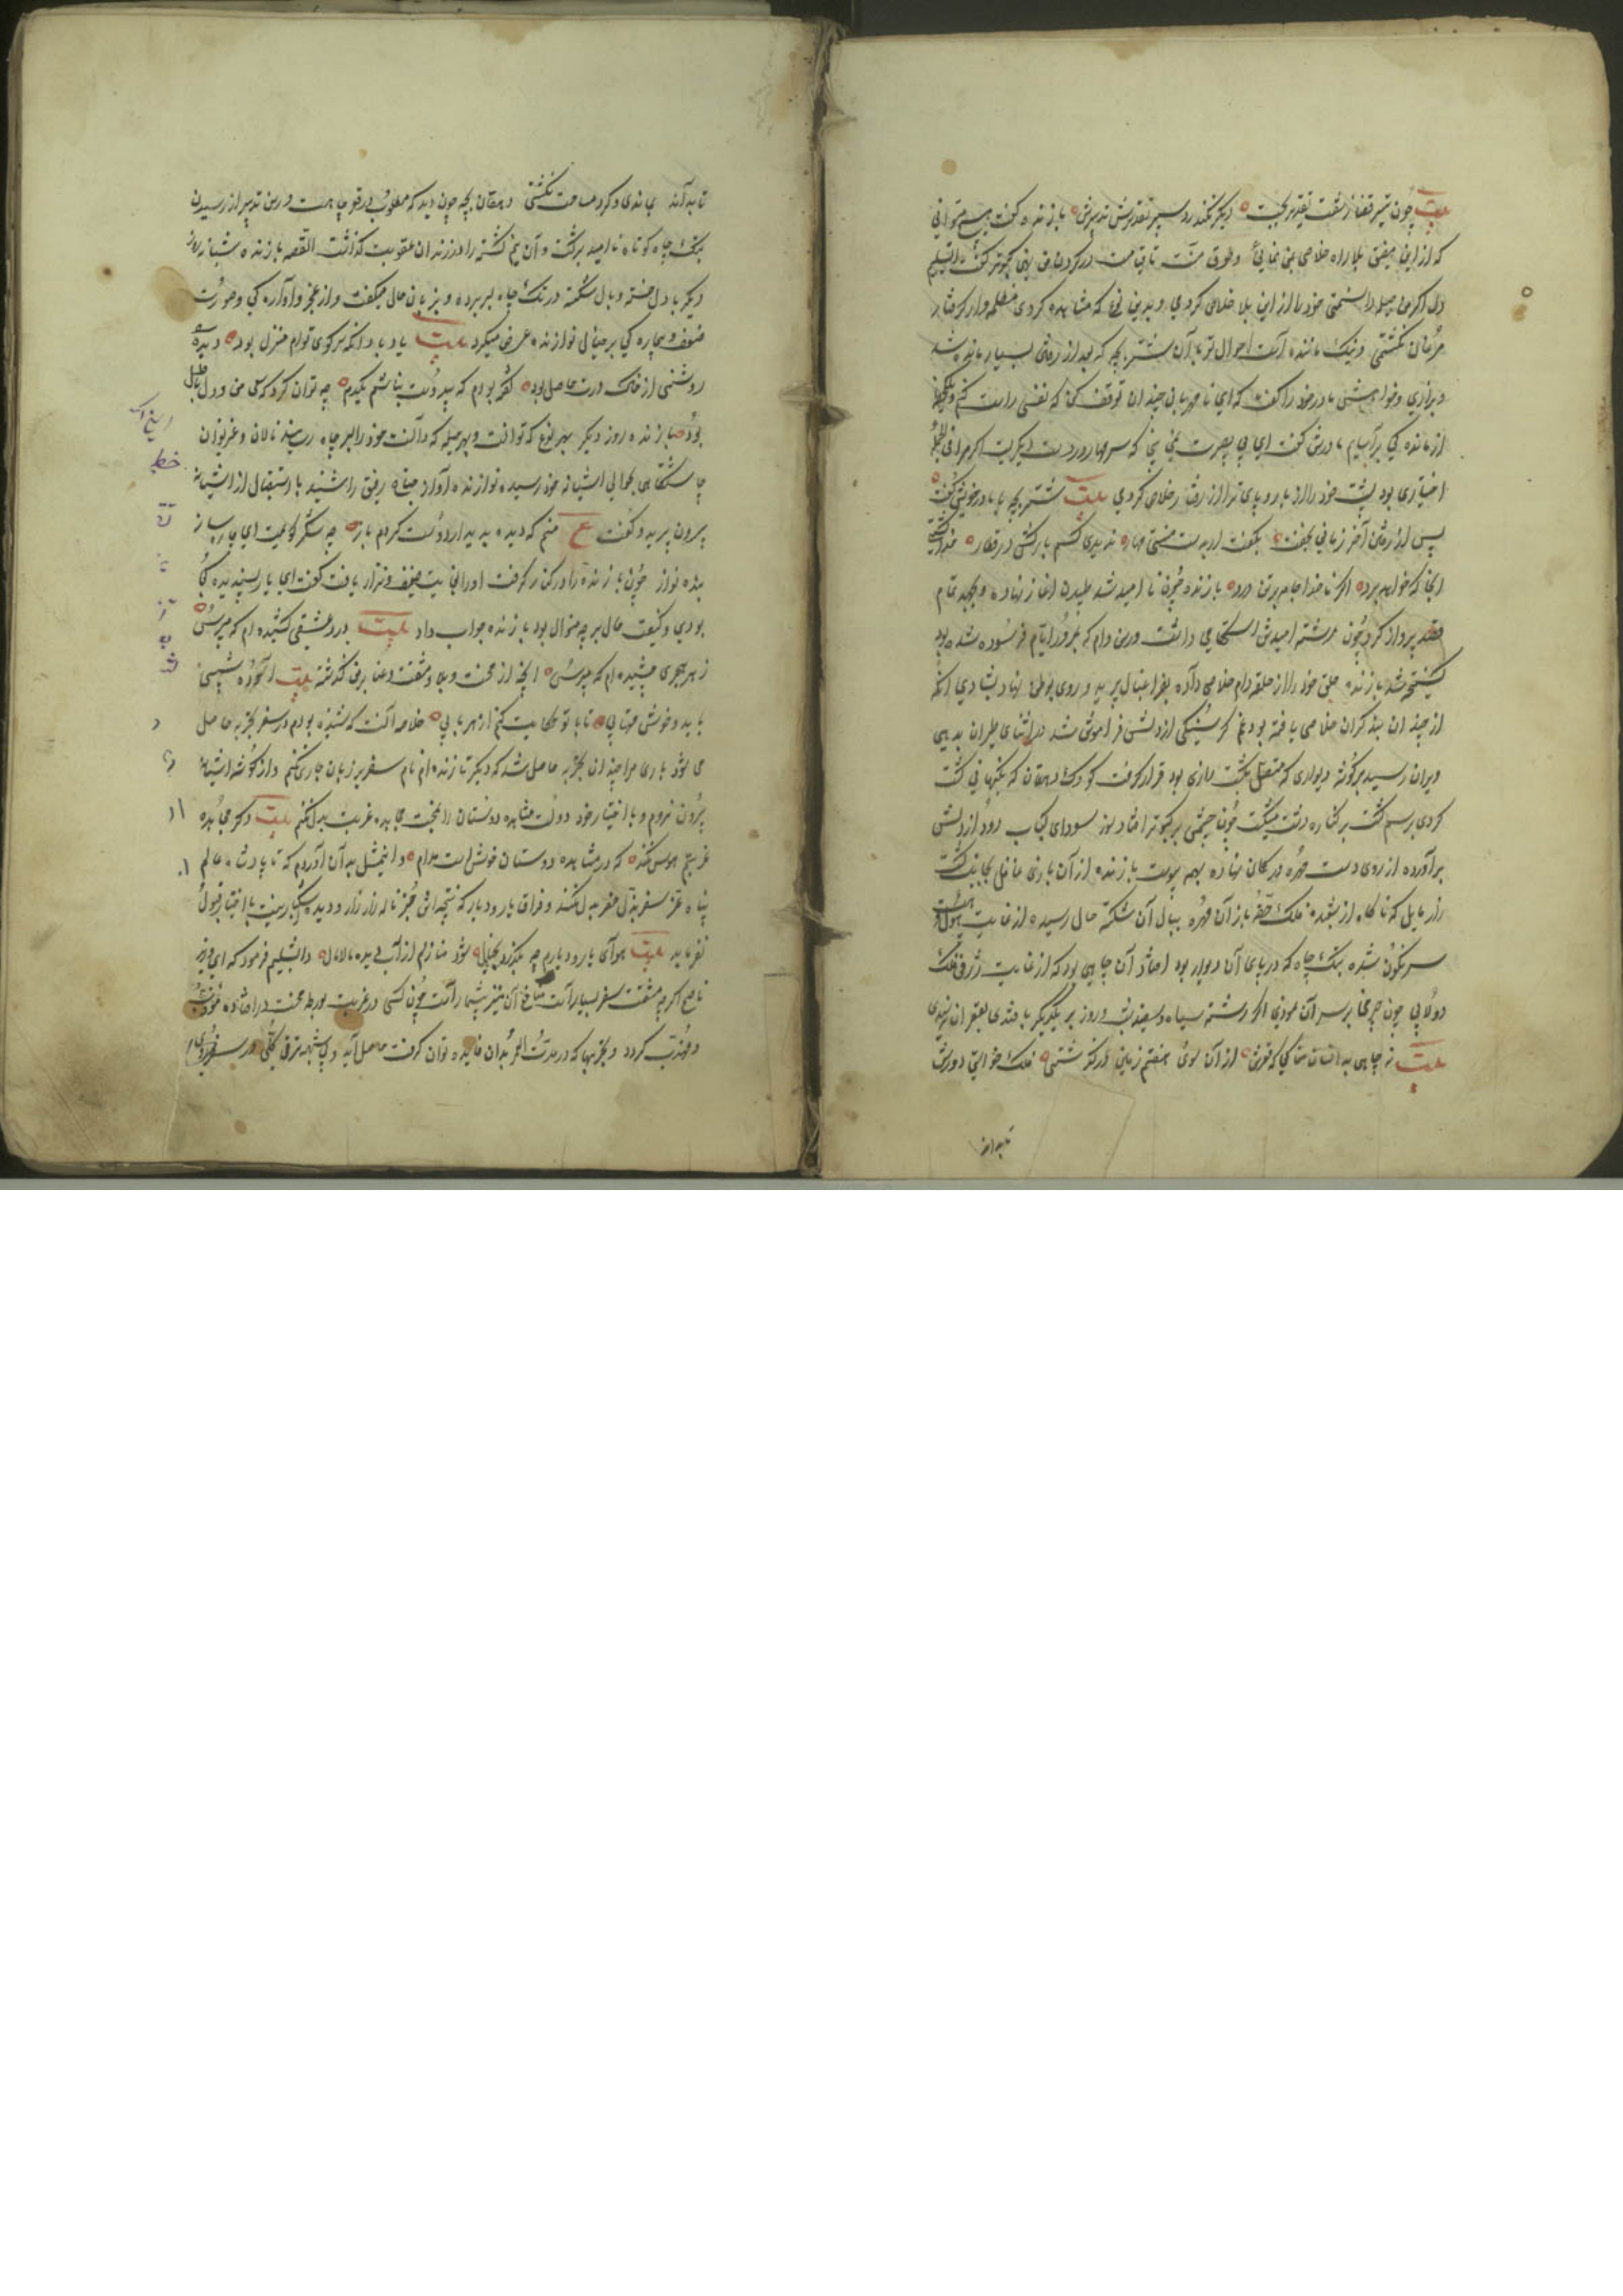 بیت چون تیر قضا ز شست تقدیر بجست دیگر نکند رد سپر تدبیرش بازنده گفت هیچ میتوانی
که از این مضیق بلا راه خلاصی بمن نمایی و طوق منت تا قیامت در گردن من نهی کبوتر گفت ای سلیم
دل اگر من حیله دانستمی خود را از این بلا خلاص کردمی و بدین نوع که مشاهده کردی وار گرفتار
مرغان نگشتمی و نیک ماننده است احوال تو بآن شتر بچه که بعد از رفتن بسیار مانده شد
و بزاری و خواهش مادر خود را گفت که ای نامهربان چندان توقف کن که نفسی راست کنم و
از ماندگی برآسایم مادرش گفت ای بی بصیرت نمی بینی که سر مهار در دست دیگریست اگر مرا فی الجمله
اختیاری بود پشت خود را از بار و پای ترا از رفتار خلاص کردمی بیت شتر بچه با مادر خویش گفت
پس از رفتن آخر زمانی بخفت بگفت ار بدست منستی مهار ندیدی کسم بارکش در قطار خدا کشتی
آنجا که خواهد برد اگر ناخدا جامه بر تن درد بازنده چون نا امید شد طپیدن آغاز نهاد و بجهد تمام
قصد پرواز کرد چون رشته امیدش استحکامی داشت ورس دام که بمرور ایام فرسوده شده بود
گسیخته شد بازنده حلق خود را از حلقه دام خلاصی داده بفراغبال پرید و روی بوطن نهاد بشادی آنکه
از چندان بند گران خلاصی یافته بود غم گرسنگی از دلش فراموش شد در اثنای طیران بدیهی
ویران رسید بر گوشه دیواری که متصل بکشت زاری بود قرار گرفت کودک دهقان که نگهبانی کشت
کردی برسم گشت بر کناره دشت میگشت چون چشمش بر کبوتر افتاد سوز سودای کباب دود از دلش
برآورده از روی دست مهره در کمان نهاده بهم پیوست بازنده از آن بازی غافل بجانب کشت
زار مایل که ناگاه از شعبده فلک حقه باز آن مهره ببال آن شکسته حال رسیده از غایت هول و هیبت
سرنگون شده بتک چاه که در پای آن دیوار بود افتاد آن چاهی بود که از غایت ژرفی فلک
دولابی چون چرخی بر سر آن نمودی اگر رشته سیاه و سفید شب و روز بر یکدیگر بافتندی بقعر آن نرسیدی
بیت نه چاهی بدانسان مغاکی که قعرش از آن سوی هفتم زمین درگذشتی فلک خواستی دورش
تا بداند
تا بداند بماندی و گرد مساحت نگشتی دهقان بچه چون دید که مطلوب در قعر چاهست و رسن تدبیر از رسیدن
بتک چاه کوتاه نا امید برگشت و آن نیم کشته را در زندان عقوبت گذاشت القصه بازنده شبانه روز
دیگر با دل خسته و بال شکسته در تک چاه بسر برده و بزبان حال میگفت و از عجز و آوارگی و صورت
ضعف و بیچارگی بر خیال نوازنده عرض میکرد بیت یاد باد آنکه سر کوی توام منزل بود دیده
روشنی از خاک درت حاصل بود گفته بودم که بی دوست نباشم یکدم چه توان کرد که سعی من و دل باطل
بود بازنده روز دیگر بهر نوع که توانست و بهر حیله که دانست خود را بسر چاه رسانید نالان و غریوان
چاشتگاهی بحوالی آشیانه خود رسید نوازنده آواز جناح رفیق را شنید باستقبال از آشیانه
بیرون پرید و گفت ع منم که دیده بدیدار دوست کردم باز چه شکر گویمت ای چاره ساز
بنده نواز چون بازنده را در کنار گرفت او را بغایت ضعیف و نزار یافت گفت ای یار پسندیده کجا
بودی و کیفیت حال بر چه منوال بود بازنده جواب داد بیت درد عشقی کشیده ام که مپرس
زهر هجری چشیده ام که مپرس آنچه از محنت و بلا و مشقت و عنا بر من گذشته بیت آسوده شبی
باید و خوش مهتابی تا با تو حکایت کنم از هر بابی خلاصه آنست که شنیده بودم در سفر تجربه حاصل
می شود باری مرا چندان تجربه حاصل شد که دیگر تا زنده ام نام سفر بر زبان جاری نکنم و از گوشه آشیانه
بیرون نروم و باختیار خود دولت مشاهده دوستان را بمحنت مجاهده غربت بدل نکنم بیت دگر مجاهده
غربتم هوس نکند که در مشاهده دوستان خوش است مدام و این مثل بدان آوردم که تا پادشاه عالم
پناه عز سفر بذل حضر بدل نکند و فراق یار و دیار که نتیجه اش جز ناله زار زار و دیده اشکبار نیست باختیار قبول
نفرماید بیت هوای یار و دیارم چو بگذرد بخیال شود منازلم از آب دیده مالامال دابشلیم فرمود که ای وزیر
ناصح اگرچه مشقت سفر بسیار است منافع آن نیز بیشمار است چون کسی در غربت بورطه محنت درافتاده مؤدب
و مهذب گردد و تجربها که در مدت العمر بدان فایده توان گرفت حاصل آید و بی شبهه ترقی کلی در سفر روی
خط